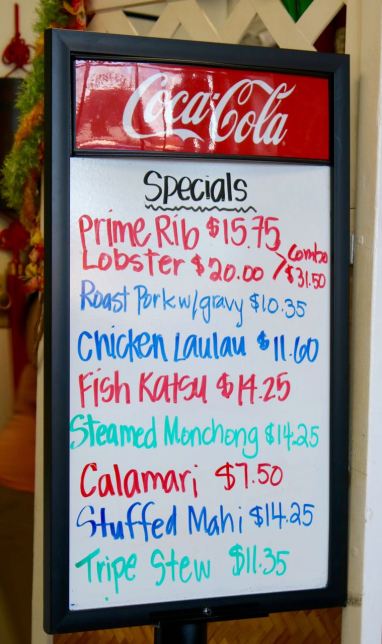 Coca-Cola
Specials
Prime Rib $15.75
Lobster $20.00
Combo
$31.50
Roast Pork w/gravy $10.35
Chicken Laulau $11.60
Fish Katsu $14.25
Steamed Monchong $14.25
Calamari $7.50
Stuffed Mahi $14.25
Tripe Stew $11.35